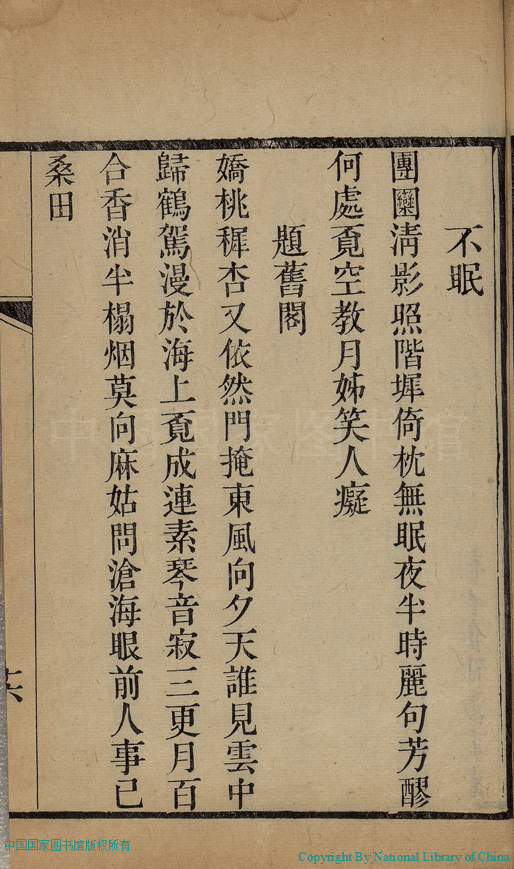 不眠
團圞淸影照階墀倚枕無眠夜半時麗句芳醪
何處覔空教月姊笑人癡
題舊閣
嬌桃穉杏又依然門掩東風向夕天誰見雲中
歸鶴駕漫於海上覔成連素琴音寂三更月百
合香消半榻烟莫向麻姑問滄海眼前人事已
桑田
中国国家图书馆
中国国家图书馆版权所有
Copyright By National Library of China